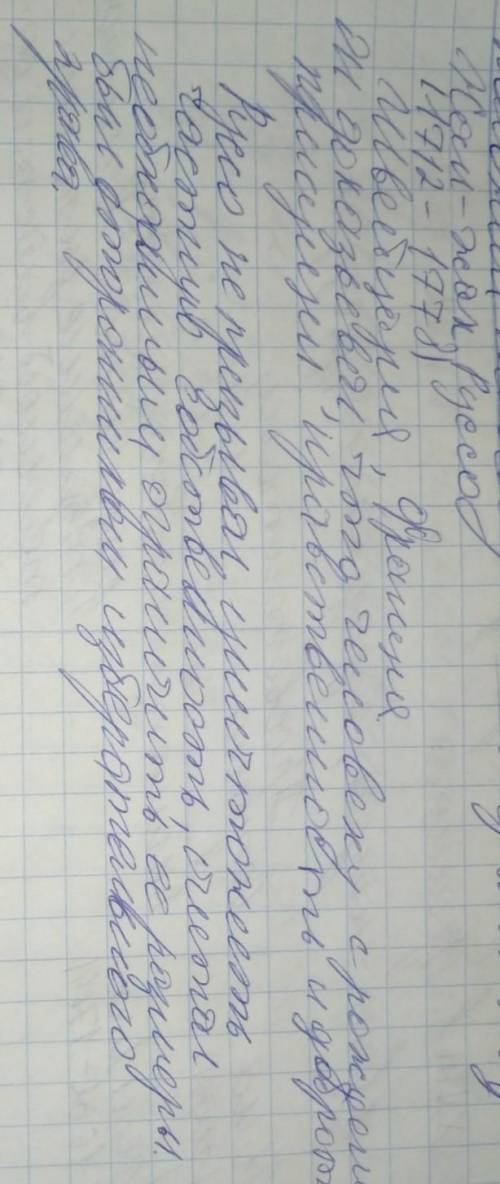 Жан-жак Руссо
1712-1778)
Швейцария, Франция
Он доказывал, что человеку с рожден
присущи нравственность и доброт
Руссо не призывал уничтожать
частную собственность, считал
необходимым ограничить ее размеры.
был сторонником избирательного
права.